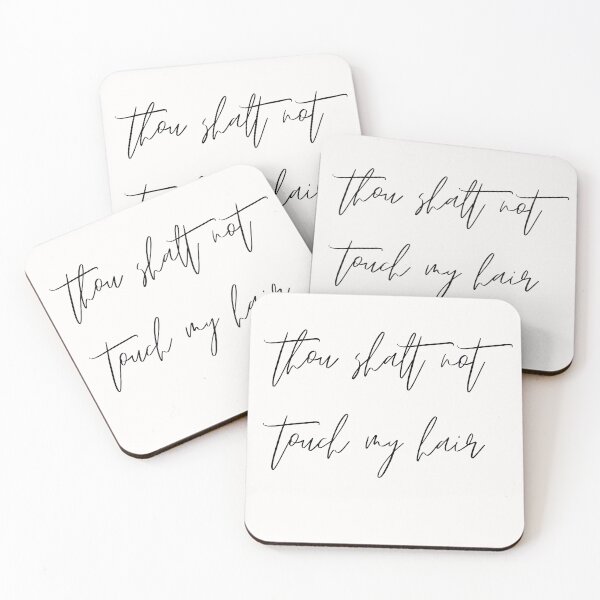 thou shalt not
thou shalt not
touch my hair
thou shalt not
touch my hair
thou shalt not
touch my hair